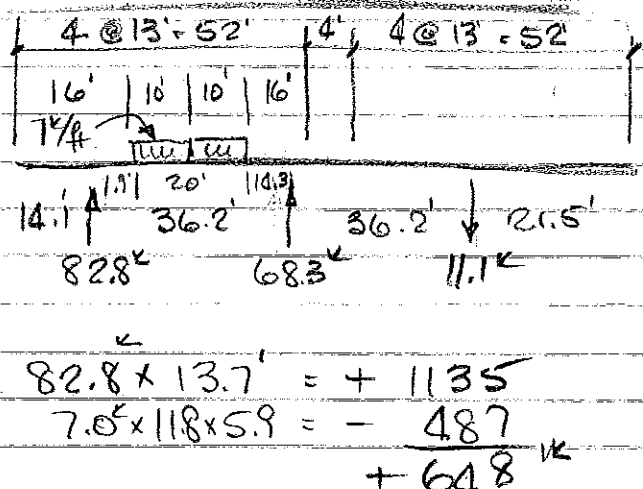 4 @ 13' = 52' 4' 4 @ 13' = 52'
16' 10' 10' 16'
7 k/ft
1.9' 20' 14.3'
14.1' 36.2' 36.2' 21.5'
82.8k 68.3k 11.1k
82.8k x 13.7' = + 1135
7.0k x 11.8 x 5.9 = - 487
+ 648 'k